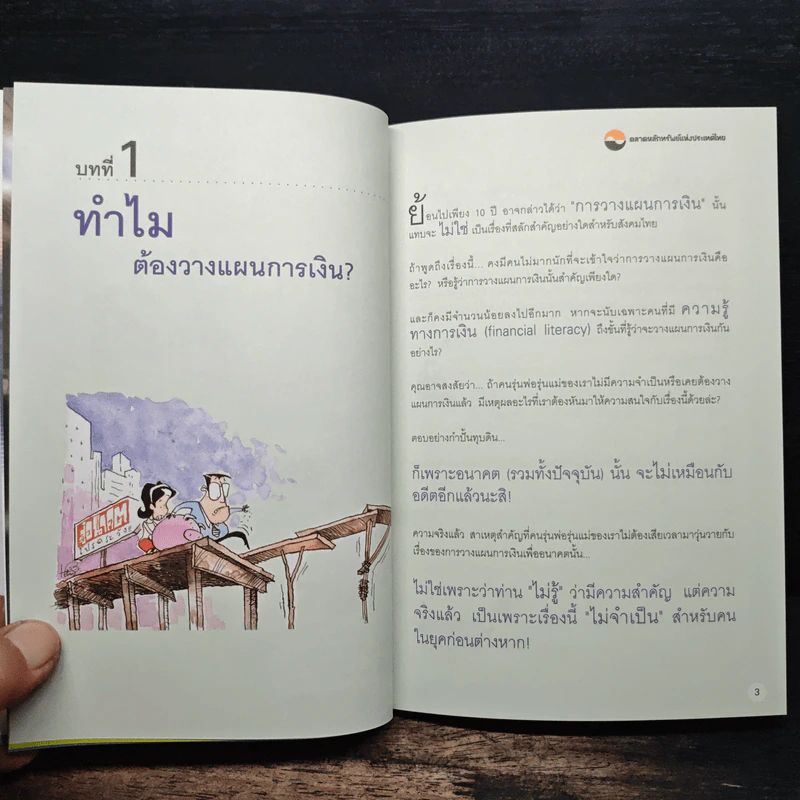 บทที่ 1
ทำไม
ต้องวางแผนการเงิน?
อนาคต
โปรดระวัง!!
ตลาดหลักทรัพย์แห่งประเทศไทย
ย้อนไปเพียง 10 ปี อาจกล่าวได้ว่า "การวางแผนการเงิน" นั้น
แทบจะ ไม่ใช่ เป็นเรื่องที่สลักสำคัญอย่างใดสำหรับสังคมไทย
ถ้าพูดถึงเรื่องนี้... คงมีคนไม่มากนักที่จะเข้าใจว่าการวางแผนการเงินคือ
อะไร? หรือรู้ว่าการวางแผนการเงินนั้นสำคัญเพียงใด?
และก็คงมีจำนวนน้อยลงไปอีกมาก หากจะนับเฉพาะคนที่มี ความรู้
ทางการเงิน (financial literacy) ถึงขั้นที่รู้ว่าจะวางแผนการเงินกัน
อย่างไร?
คุณอาจสงสัยว่า... ถ้าคนรุ่นพ่อรุ่นแม่ของเราไม่มีความจำเป็นหรือเคยต้องวาง
แผนการเงินแล้ว มีเหตุผลอะไรที่เราต้องหันมาให้ความสนใจกับเรื่องนี้ด้วยล่ะ?
ตอบอย่างกำปั้นทุบดิน...
ก็เพราะอนาคต (รวมทั้งปัจจุบัน) นั้น จะไม่เหมือนกับ
อดีตอีกแล้วนะสิ!
ความจริงแล้ว สาเหตุสำคัญที่คนรุ่นพ่อรุ่นแม่ของเราไม่ต้องเสียเวลามาวุ่นวายกับ
เรื่องของการวางแผนการเงินเพื่ออนาคตนั้น...
ไม่ใช่เพราะว่าท่าน "ไม่รู้" ว่ามีความสำคัญ แต่ความ
จริงแล้ว เป็นเพราะเรื่องนี้ "ไม่จำเป็น" สำหรับคน
ในยุคก่อนต่างหาก!
3